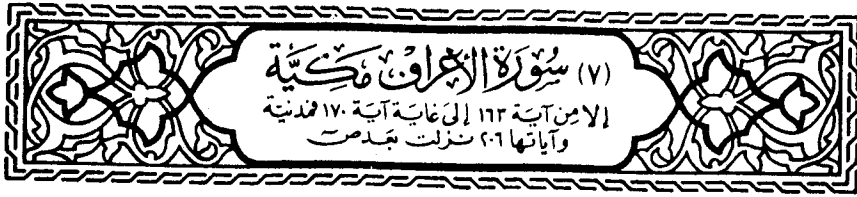 (٧) سُورَةُ الأَعْرَافِ مَكِيَّة
إلا من آية ١٦٣ إلى غاية آية ١٧٠ فمدنية
وآياتها ٢٠٦ نزلت بعد ص